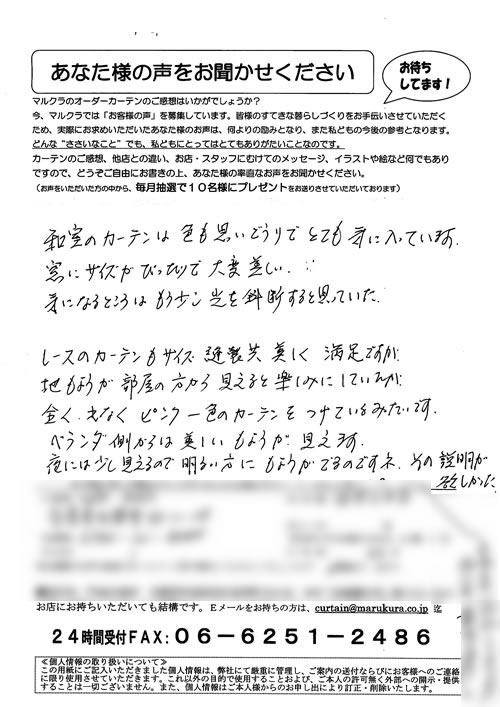 あなた様の声をお聞かせください
お待ち
してます!
マルクラのオーダーカーテンのご感想はいかがでしょうか?
今、マルクラでは「お客様の声」を募集しています。皆様のすてきな暮らしづくりをお手伝いさせていただく
ため、実際にお求めいただいたあなた様のお声は、何よりの励みとなり、また私どもの今後の参考となります。
どんな“ささいなこと”でも、私どもにとってはとてもありがたいことなのです。
カーテンのご感想、他店との違い、お店・スタッフにむけてのメッセージ、イラストや絵など何でもあり
ですので、どうぞご自由にお書きの上、あなた様の率直なお声をお聞かせください。
(お声をいただいた方の中から、毎月抽選で10名様にプレゼントをお送りさせていただいております)
和室のカーテンは色も思いどうりでとても気に入っています。
窓にサイズがぴったりで大変美しい。
気になるところはもう少し光を斜断すると思っていた。
レースのカーテンもサイズ 縫製共 美しく 満足ですが
地もようが部屋の方から見えると楽しみにしていたが
全く なく ピンク一色のカーテンをつけているみたいです。
ベランダ側からは美しいもようが見えます。
夜には少し見えるので明るい方にもようがでるのですネ。その説明が
欲しかった
お店にお持ちいただいても結構です。Eメールをお持ちの方は、curtain@marukura.co.jp 迄
24時間受付FAX:06-6251-2486
≪個人情報の取り扱いについて≫
この用紙にご記入いただきました個人情報は、弊社にて厳重に管理し、ご案内の送付ならびにお客様へのご連絡
に限り使用させていただきます。これ以外の目的で使用することおよび、ご本人の許可無く外部への開示・提供
することは一切ございません。また、個人情報はご本人様からのお申し出により訂正・削除いたします。